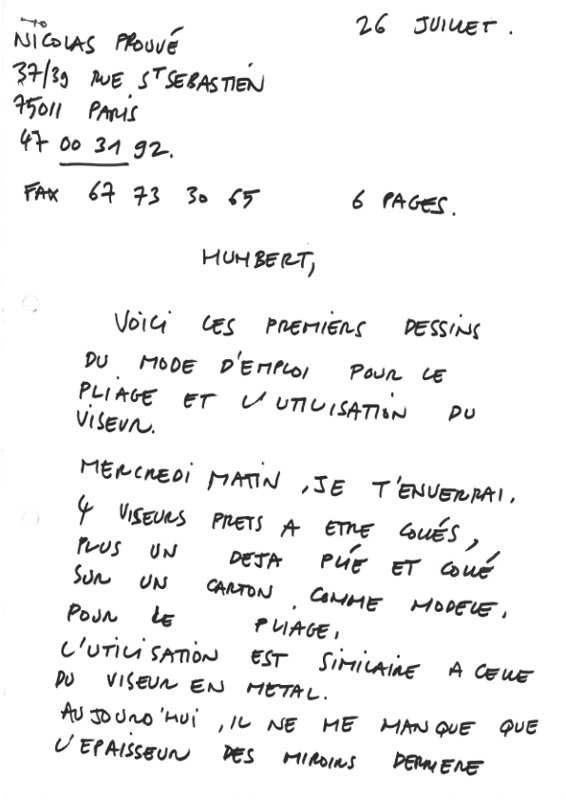 NICOLAS PROUVÉ
26 JUILLET.
37/39 RUE ST SEBASTIEN
75011 PARIS
47 00 31 92.
FAX 67 73 30 65
6 PAGES.
HUMBERT,
VOICI LES PREMIERS DESSINS
DU MODE D'EMPLOI POUR LE
PLIAGE ET L'UTILISATION DU
VISEUR.
MERCREDI MATIN, JE T'ENVERRAI.
4 VISEURS PRETS A ETRE COLLÉS,
PLUS UN DEJA PLIÉ ET COLLÉ
SUR UN CARTON. COMME MODELE.
POUR LE PLIAGE.
L'UTILISATION EST SIMILAIRE A CELLE
DU VISEUR EN METAL.
AUJOURD'HUI, IL NE ME MANQUE QUE
L'EPAISSEUR DES MIROIRS DERRIERE